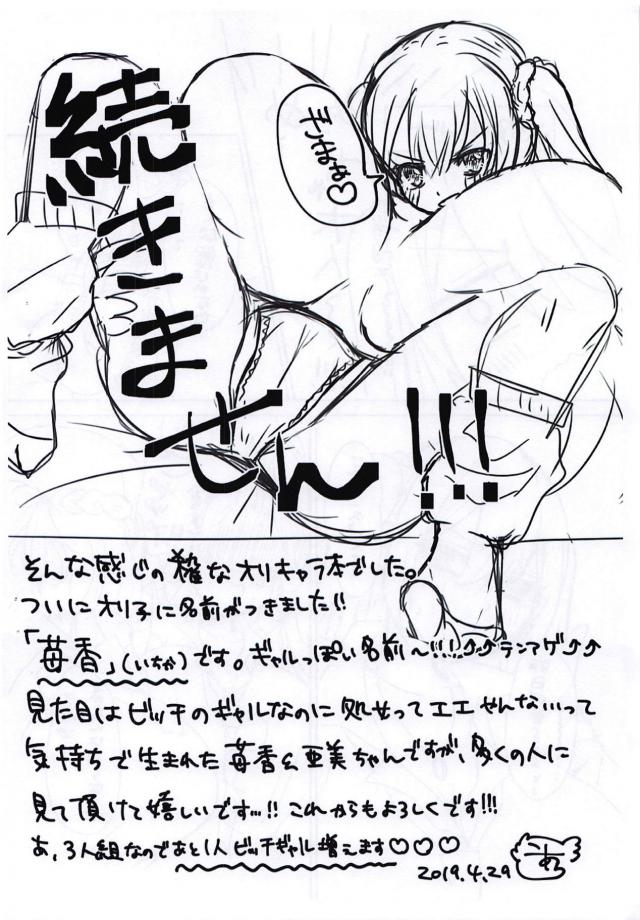 続きません!!!
そんな感じの雑なオリキャラ本でした。
ついにオリ子に名前がつきました!!
「苺香」(いちか)です。ギャルっぽい名前〜!!!!↑↑テンアゲ↑↑
見た目はビッチのギャルなのに処女ってエエやんな!!!って
気持ちで生まれた苺香&亜美ちゃんですが、多くの人に
見て頂けて嬉しいです…!! これからもよろしくです!!!
あ、3人組なのであと1人ビッチギャル増えます♡♡♡
2019.4.29